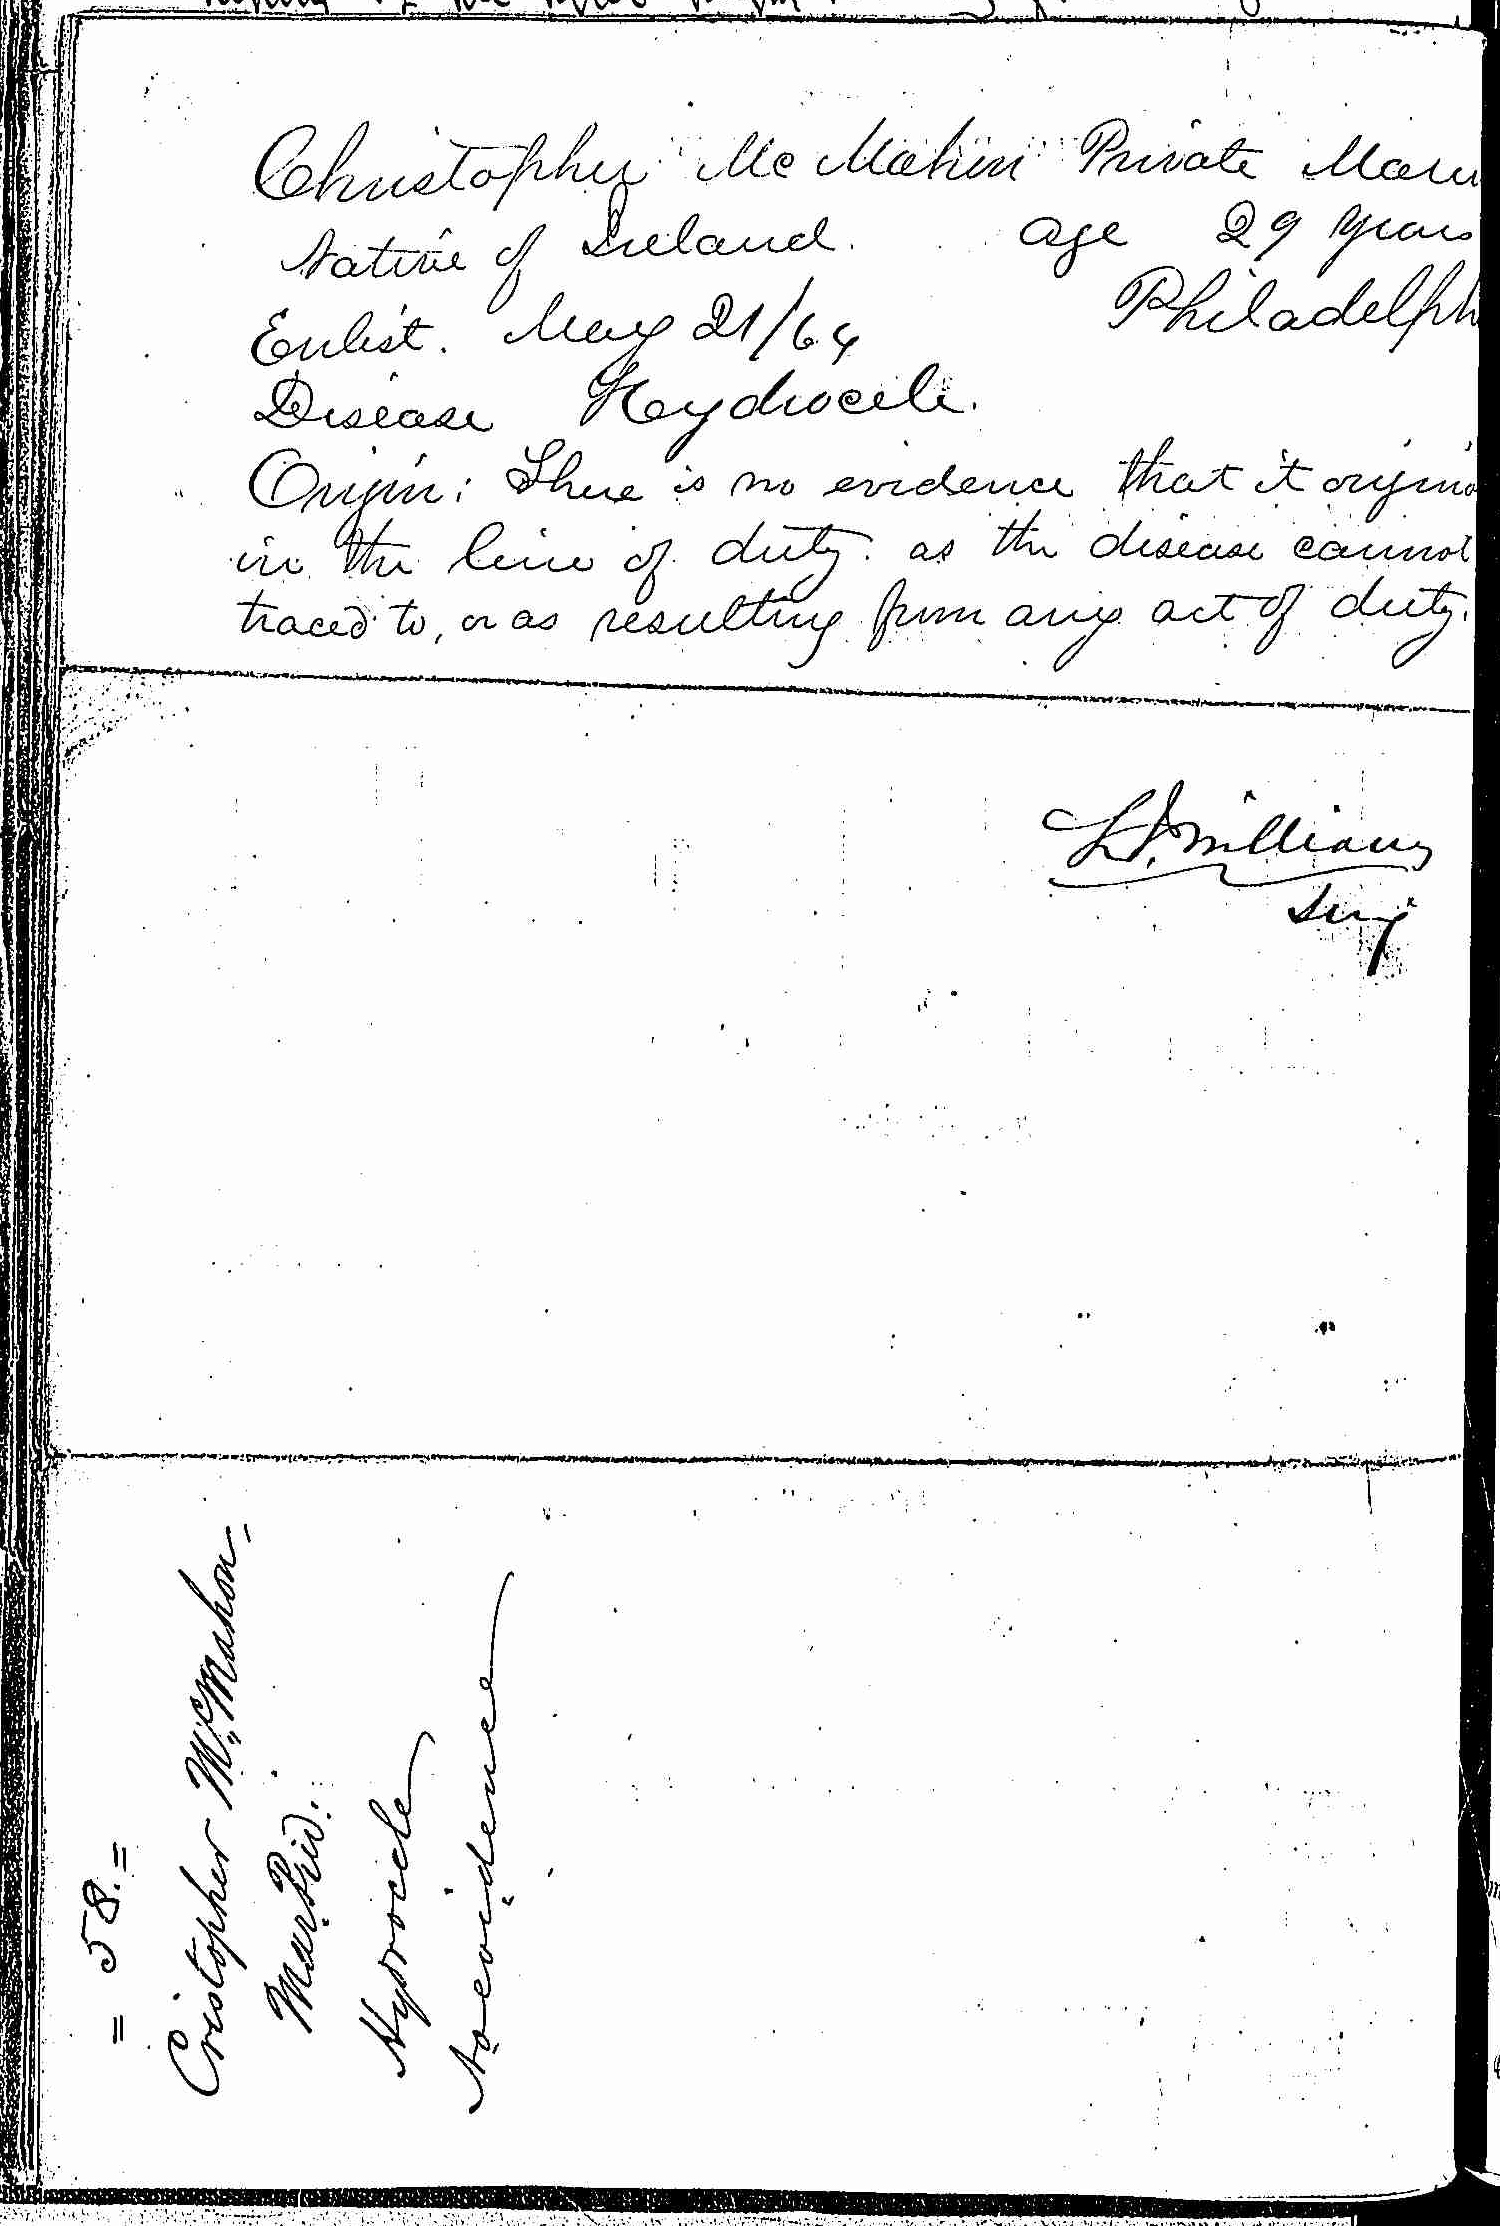 Christopher McMahon Private Marin
Native of Ireland. age 29 years
Enlist. May 21/64 Philadelph
Disease Hydrocele.
Origin: There is no evidence that it origina
in the line of duty. as the disease cannot
traced to, or as resulting from any act of duty.
Williams
Surg
= 58. =
Cristopher McMahon.
Mar. Priv.
Hydrocele
No evidence